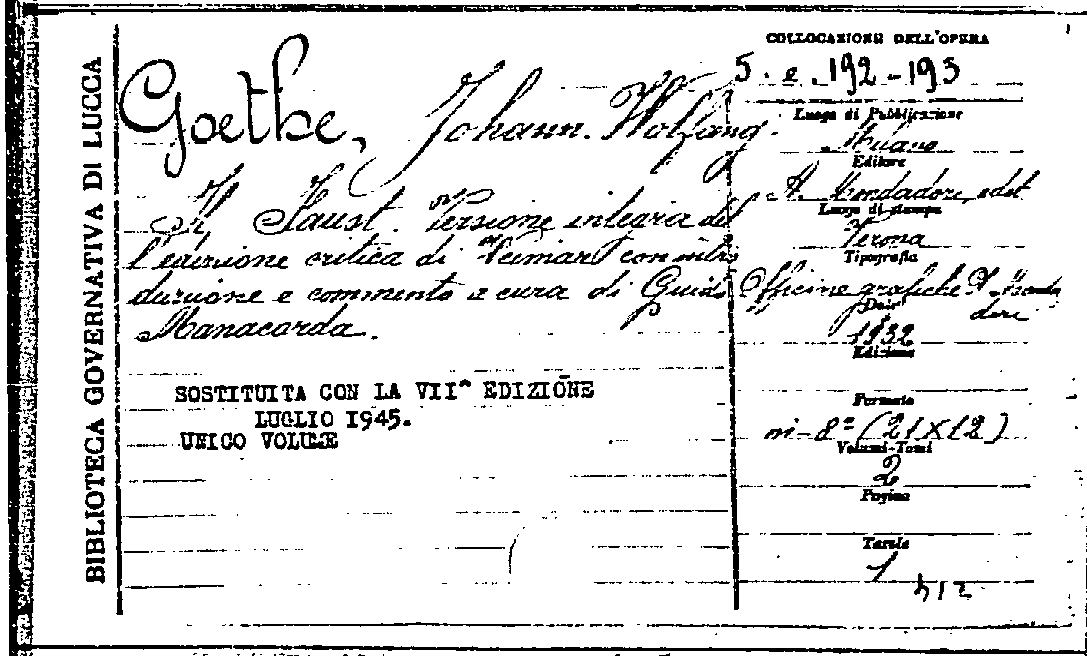 BIBLIOTECA GOVERNATIVA DI LUCCA
Goethe, Johann Wolfang.
Il Faust. Versione integra del
l'edizione critica di Weimar con intro
duzione e commento a cura di Guido
Manacorda.
SOSTITUITA CON LA VII^ EDIZIONE
LUGLIO 1945.
UNICO VOLUME
COLLOCAZIONE DELL'OPERA
5. e. 192-193
Luogo di Pubblicazione
Milano
Editore
A. Mondadori edit
Luogo di stampa
Verona
Tipografia
Officine grafiche A. Monda
dori
Data
1932
Edizione
Formato
in-8° (21×12)
Volumi-Tomi
2
Pagine
Tavole
1